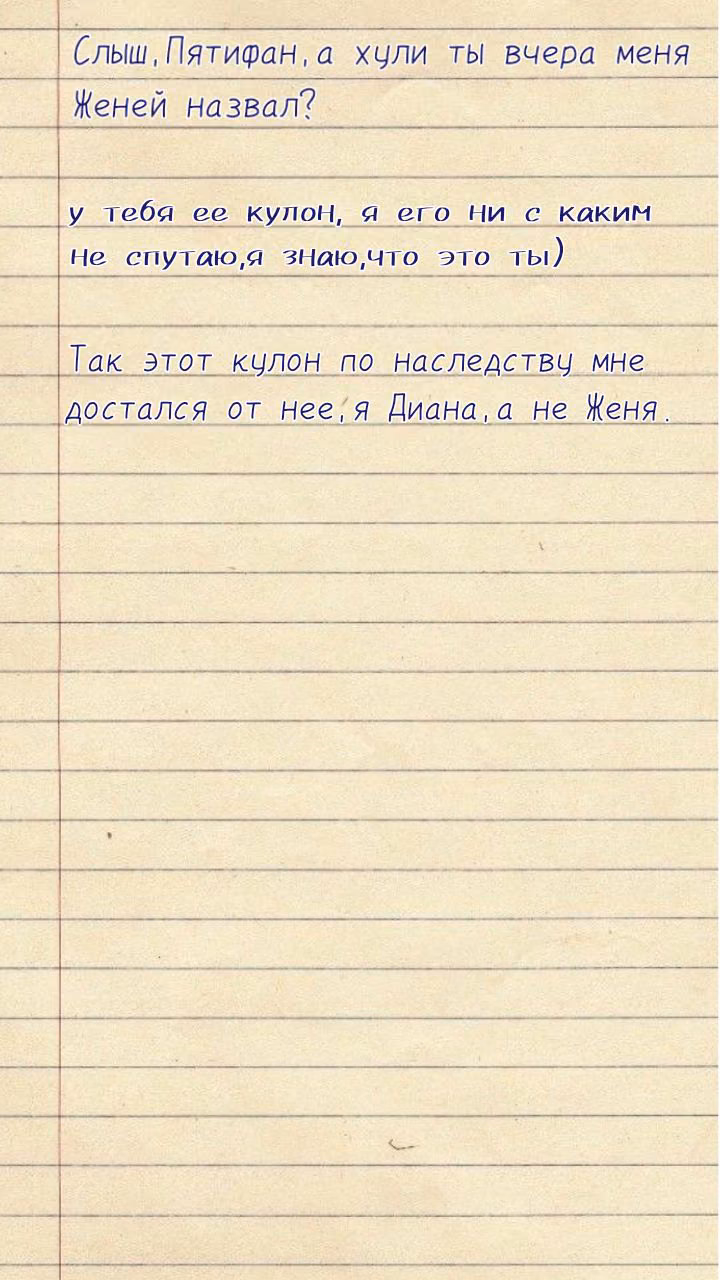 Слыш,Пятифан,а хули ты вчера меня
Женей назвал?
у тебя ее кулон, я его ни с каким
не спутаю,я знаю,что это ты)
Так этот кулон по наследству мне
достался от нее,я Диана,а не Женя.